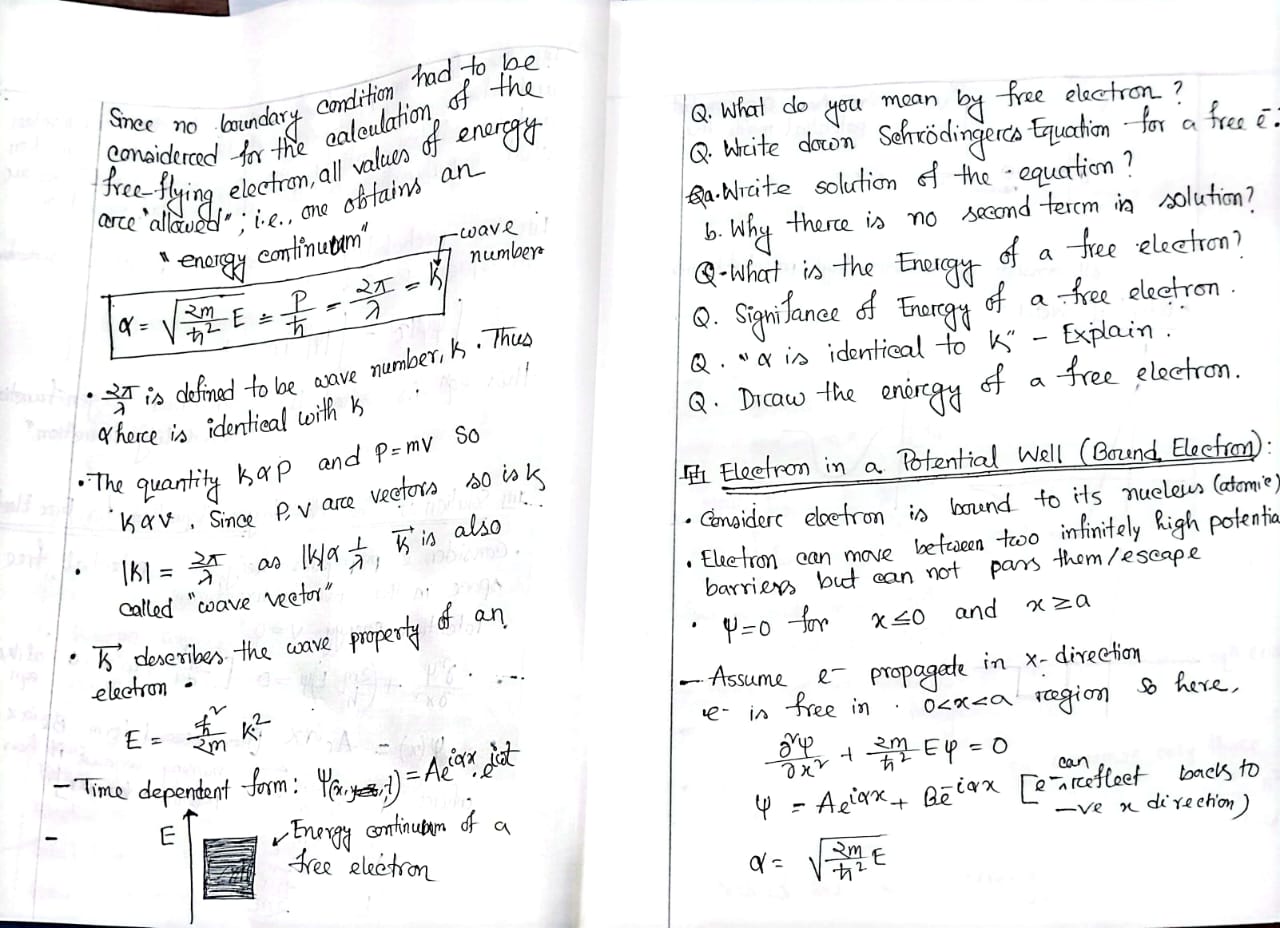 Since no boundary condition had to be
considered for the calculation of the
free-flying electron, all values of energy
are "allowed"; i.e., one obtains an
"energy continuum"
wave
number
α = √(2m/ħ² E) = P/ħ = 2π/λ = K
• 2π/λ is defined to be wave number, K. Thus
α here is identical with K
• The quantity K α P and P = mv So
K α v. Since P, v are vectors so is K
• |K| = 2π/λ as |K| α 1/λ, K⃗ is also
called "wave vector"
• K⃗ describes the wave property of an
electron.
E = ħ²/2m K²
- Time dependent form: Ψ(x,t) = Ae^iαx . e^iωt
- E
Energy continuum of a
free electron
Q. What do you mean by free electron?
Q. Write down Schrödinger's Equation for a free e-.
Qa. Write solution of the equation?
b. Why there is no second term in solution?
Q. What is the Energy of a free electron?
Q. Signifance of Energy of a free electron.
Q. "α is identical to K" - Explain.
Q. Draw the energy of a free electron.
Electron in a Potential Well (Bound Electron):
• Consider electron is bound to its nucleus (atomic)
• Electron can move between two infinitely high potentia
barriers but can not pass them/escape
• Ψ=0 for x≤0 and x≥a
- Assume e- propagate in x-direction
e- is free in 0<x<a region So here,
∂²ψ/∂x² + 2m/ħ² Eψ = 0
ψ = Ae^iαx + Be^-iαx [e- can reflect back to
-ve x direction)
α = √(2m/ħ² E)